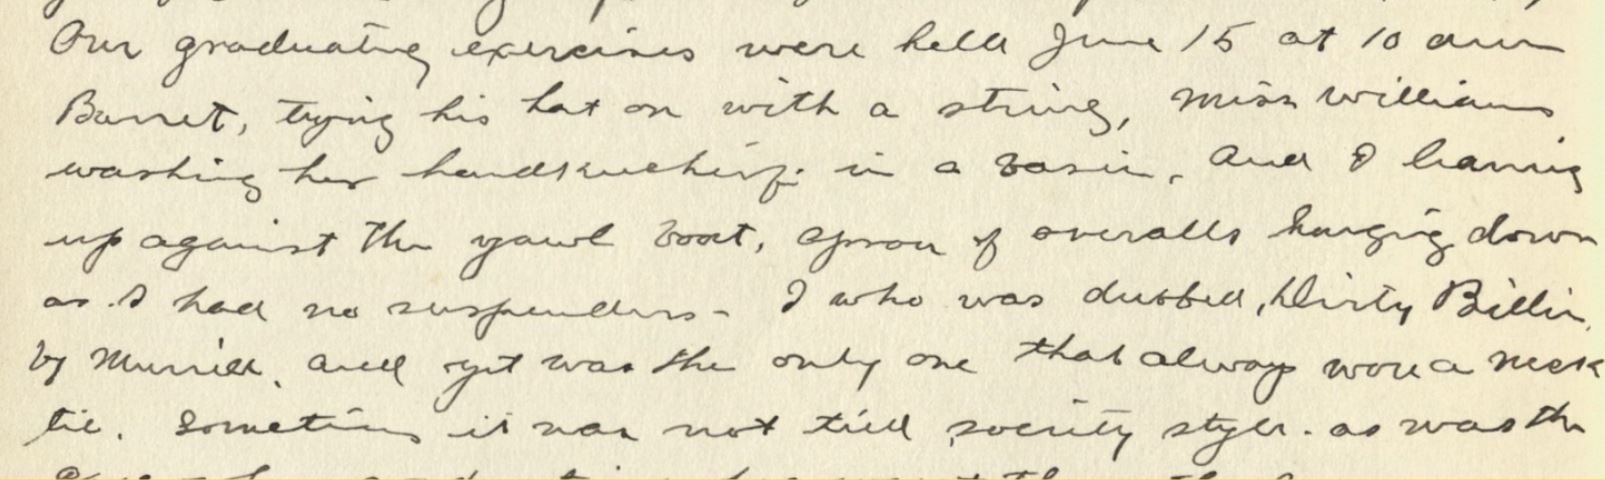 Our graduating exercises were held June 15 at 10 am
Barret, tying his hat on with a string, Miss Williams
washing her handkerchief in a basin, and I leaning
up against the yawl boat, apron of overalls hanging down
as I had no suspenders - I who was dubbed, Dirty Billie,
by Murrill, and yet was the only one that always wore a neck
tie. Sometimes it was not tied society style. as was the